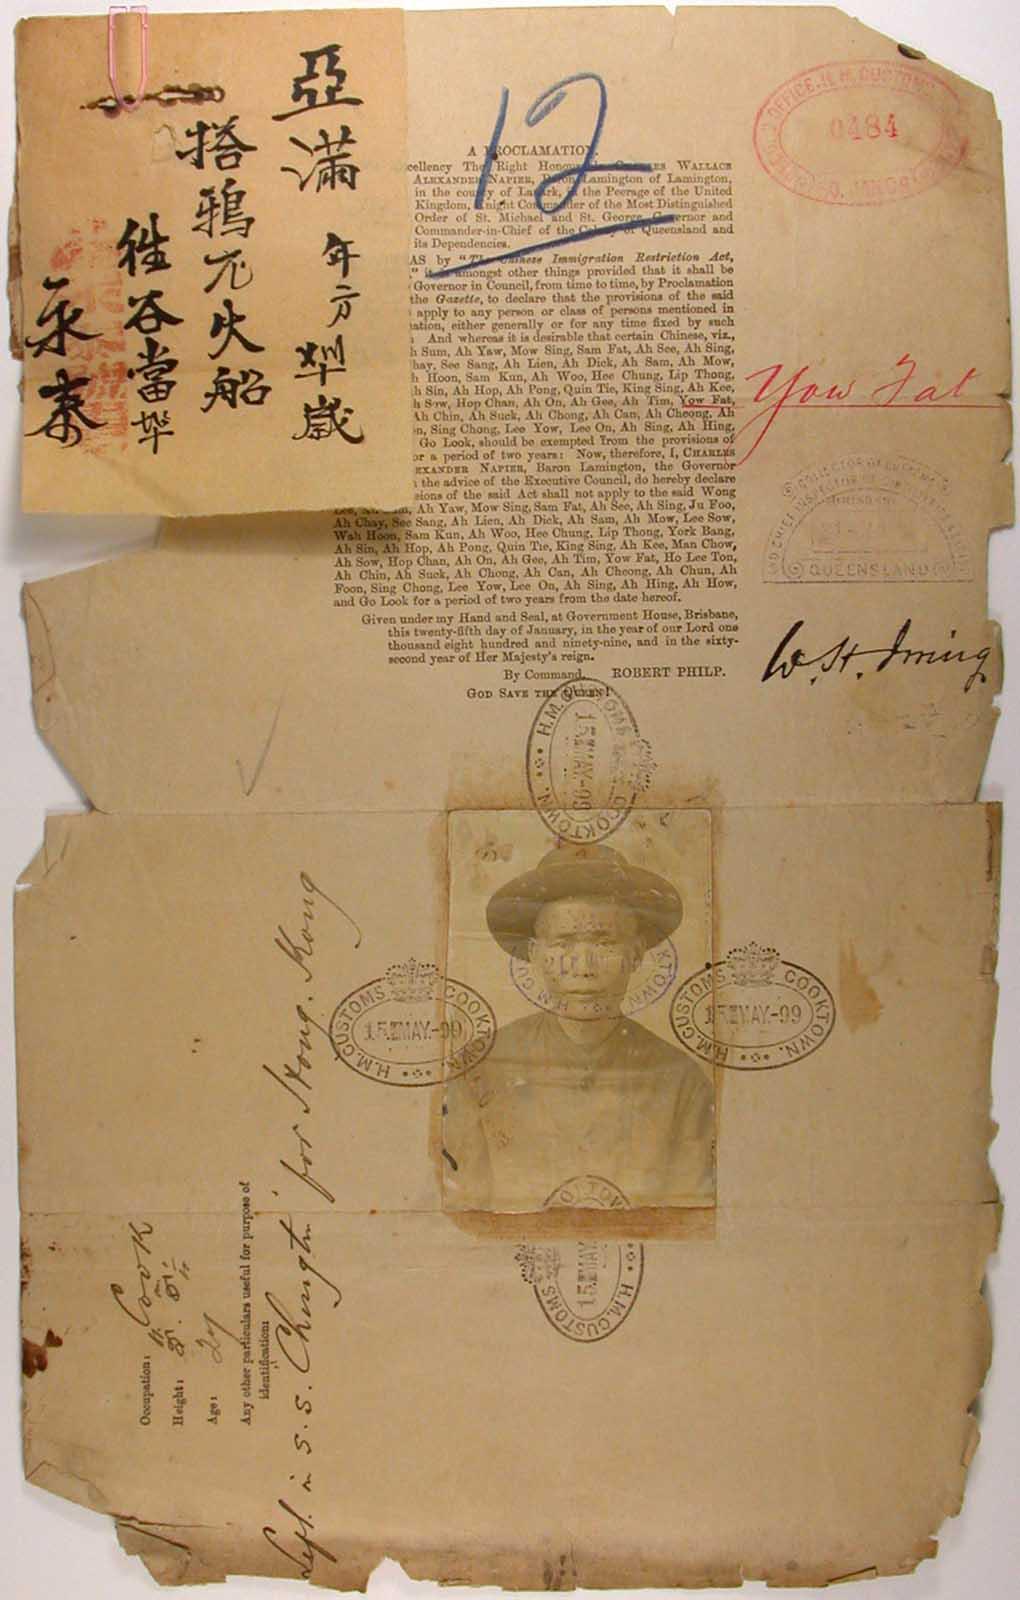 亞滿 年方 歲
搭鴉 火船
往谷當埠
永泰
12
0484
A PROCLAMATION.
Excellency The Right Honourable CHARLES WALLACE
ALEXANDER NAPIER, Baron Lamington of Lamington,
in the county of Lanark, in the Peerage of the United
Kingdom, Knight Commander of the Most Distinguished
Order of St. Michael and St. George, Governor and
Commander-in-Chief of the Colony of Queensland and
its Dependencies.
AS by "The Chinese Immigration Restriction Act,
" it is amongst other things provided that it shall be
Governor in Council, from time to time, by Proclamation
the Gazette, to declare that the provisions of the said
apply to any person or class of persons mentioned in
ation, either generally or for any time fixed by such
And whereas it is desirable that certain Chinese, viz.,
h Sum, Ah Yaw, Mow Sing, Sam Fat, Ah See, Ah Sing,
hay, See Sang, Ah Lien, Ah Dick, Ah Sam, Ah Mow,
h Hoon, Sam Kun, Ah Woo, Hee Chung, Lip Thong,
h Sin, Ah Hop, Ah Pong, Quin Tie, King Sing, Ah Kee,
h Sow, Hop Chan, Ah On, Ah Gee, Ah Tim, Yow Fat,
Yow Fat
Ah Chin, Ah Suck, Ah Chong, Ah Can, Ah Cheong, Ah
n, Sing Chong, Lee Yow, Lee On, Ah Sing, Ah Hing,
Go Look, should be exempted from the provisions of
or a period of two years: Now, therefore, I, CHARLES
EXANDER NAPIER, Baron Lamington, the Governor
the advice of the Executive Council, do hereby declare
sions of the said Act shall not apply to the said Wong
Ah Yaw, Mow Sing, Sam Fat, Ah See, Ah Sing, Ju Foo,
Ah Chay, See Sang, Ah Lien, Ah Dick, Ah Sam, Ah Mow, Lee Sow,
Wah Hoon, Sam Kun, Ah Woo, Hee Chung, Lip Thong, York Bang,
Ah Sin, Ah Hop, Ah Pong, Quin Tie, King Sing, Ah Kee, Man Chow,
Ah Sow, Hop Chan, Ah On, Ah Gee, Ah Tim, Yow Fat, Ho Lee Ton,
Ah Chin, Ah Suck, Ah Chong, Ah Can, Ah Cheong, Ah Chun, Ah
Foon, Sing Chong, Lee Yow, Lee On, Ah Sing, Ah Hing, Ah How,
and Go Look for a period of two years from the date hereof.
Given under my Hand and Seal, at Government House, Brisbane,
this twenty-fifth day of January, in the year of our Lord one
thousand eight hundred and ninety-nine, and in the sixty-
second year of Her Majesty's reign.
By Command, ROBERT PHILP.
GOD SAVE THE QUEEN!
QUEENSLAND
W. H. Irving
H.M. CUSTOMS COOKTOWN.
15 MAY.-99
H.M. CUSTOMS COOKTOWN.
15 MAY.-99
H.M. CUSTOMS COOKTOWN.
15 MAY.-99
H.M. CUSTOMS
15 MAY.
Occupation: Cook
Height:
Age: 27
Any other particulars useful for purpose of
identification:
Left in S.S. Chingtu for Hong Kong